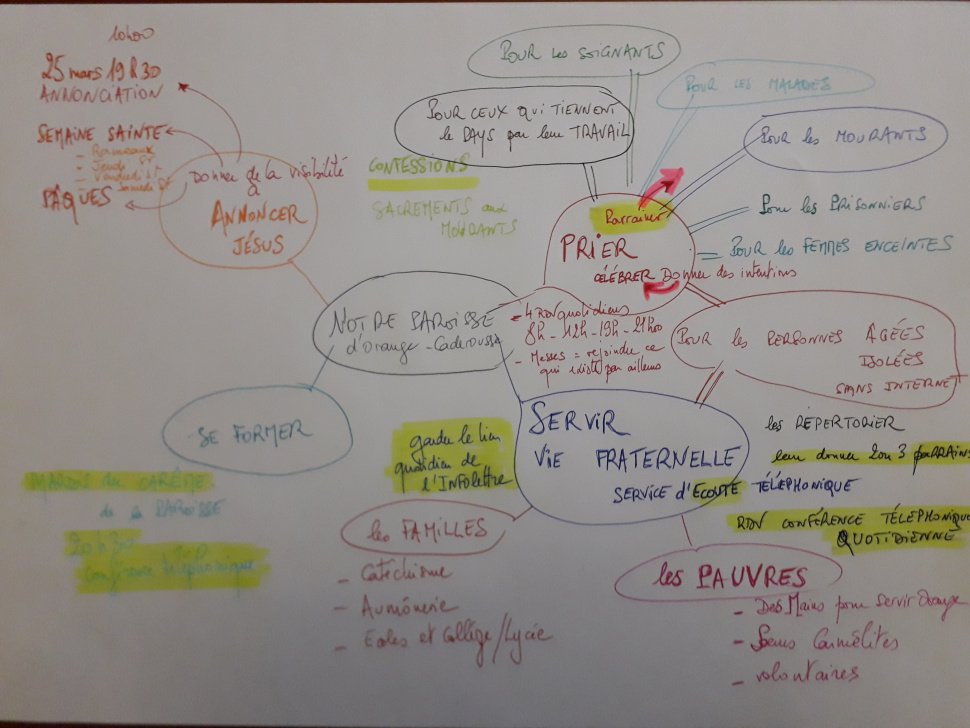 10h00
25 mars 19h30
ANNONCIATION
SEMAINE SAINTE
- Rameaux
- Jeudi St
- Vendredi St
- Samedi St
PÂQUES
Donner de la visibilité
à
ANNONCER
JÉSUS
CONFESSIONS
SACREMENTS aux
MOURANTS
POUR les SOIGNANTS
POUR CEUX qui TIENNENT
le PAYS par leur TRAVAIL
POUR LES MALADES
POUR les MOURANTS
Pour les PRISONNIERS
POUR les FEMMES ENCEINTES
Parrainer
PRIER
CÉLÉBRER Donner des intentions
- 4 RDV quotidiens
8h - 12h - 19h - 21h00
- Messes = rejoindre ce
qui existe par ailleurs
POUR les PERSONNES AGÉES
ISOLÉES
SANS INTERNET
NOTRE PAROISSE
d'Orange - Caderousse
SE FORMER
MARDIS du CARÊME
de la PAROISSE
20h30
conférence téléphonique
garder le lien
quotidien de
l'INFOlettre
SERVIR
VIE FRATERNELLE
SERVICE d'ECOUTE TÉLÉPHONIQUE
les RÉPERTORIER
leur donner 2 ou 3 PARRAINS
RDV CONFÉRENCE TÉLÉPHONIQUE
QUOTIDIENNE
les FAMILLES
- Catéchisme
- Aumônerie
- Ecoles et Collège/Lycée
les PAUVRES
- Des Mains pour Servir Orange
- Soeurs Carmélites
- volontaires